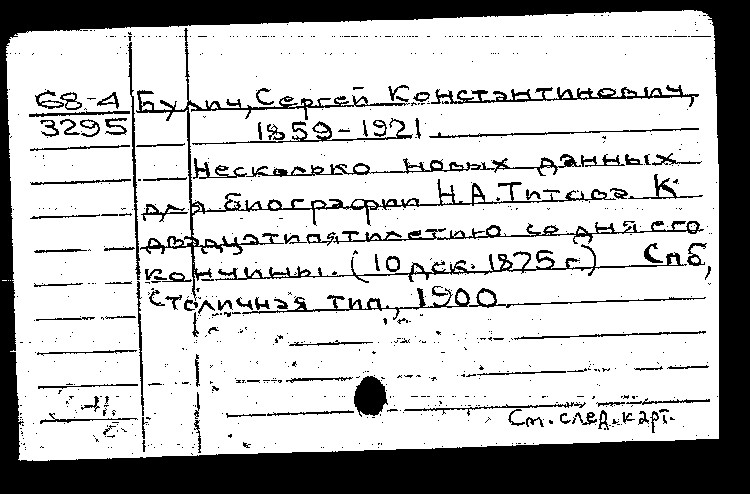 68-4 Булич, Сергей Константинович,
3295 1859-1921.
Несколько новых данных
для биографии Н.А.Титова. К
двадцатипятилетию со дня его
кончины. (10 дек. 1875 г.) Спб,
Столичная тип., 1900.
См. след. карт.